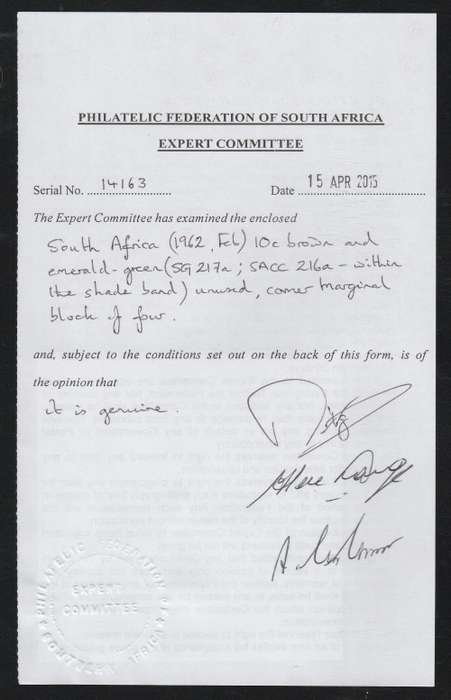 PHILATELIC FEDERATION OF SOUTH AFRICA
EXPERT COMMITTEE
Serial No. 14163 Date 15 APR 2015
The Expert Committee has examined the enclosed
South Africa (1962, Feb) 10c brown and
emerald-green (SG 217a; SACC 216a - within
the shade band) unused, corner marginal
block of four.
and, subject to the conditions set out on the back of this form, is of
the opinion that
it is genuine.
PHILATELIC FEDERATION
EXPERT
COMMITTEE